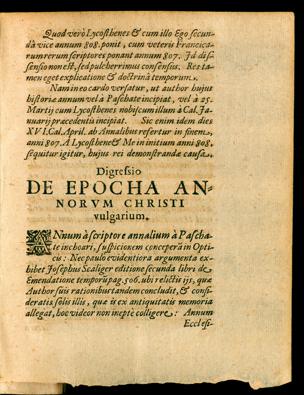 Quod verò Lycosthenes & cum illo Ego secun-
dâ vice annum 808. ponit, cum veteris Francica-
rum rerum scriptores ponant annum 807. Id dis-
sensio non est, sed pulcherrimus consensus. Res ta-
men eget explicatione & doctrinâ temporum.
Nam in eo cardo versatur, ut author hujus
historiæ annum vel à Paschate incipiat, vel à 25.
Martij cum Lycosthenes nobiscum illum à Cal. Ja-
nuarij præcedentis incipiat. Sic enim idem dies
XVI. Cal. April. ab Annalibus refertur in finem,
anni 807. A Lycosthene & Me in initium anni 808.
sequitur igitur, hujus rei demonstrandæ causa,
Digressio
DE EPOCHA AN-
NORVM CHRISTI
vulgarium.
ANnum à scriptore annalium à Pascha-
te inchoari, suspicionem conceperā in Opti-
cis: Nec paulo evidentiora argumenta ex-
hibet Josephus Scaliger editione secunda libri de
Emendatione temporū pag. 506. ubi relictis ijs, quæ
Author suis rationibus tandem concludit, & consi-
deratis solis illis, quæ is ex antiquitatis memoria
allegat, hoc videor non ineptè colligere: Annum
Ecclesi-